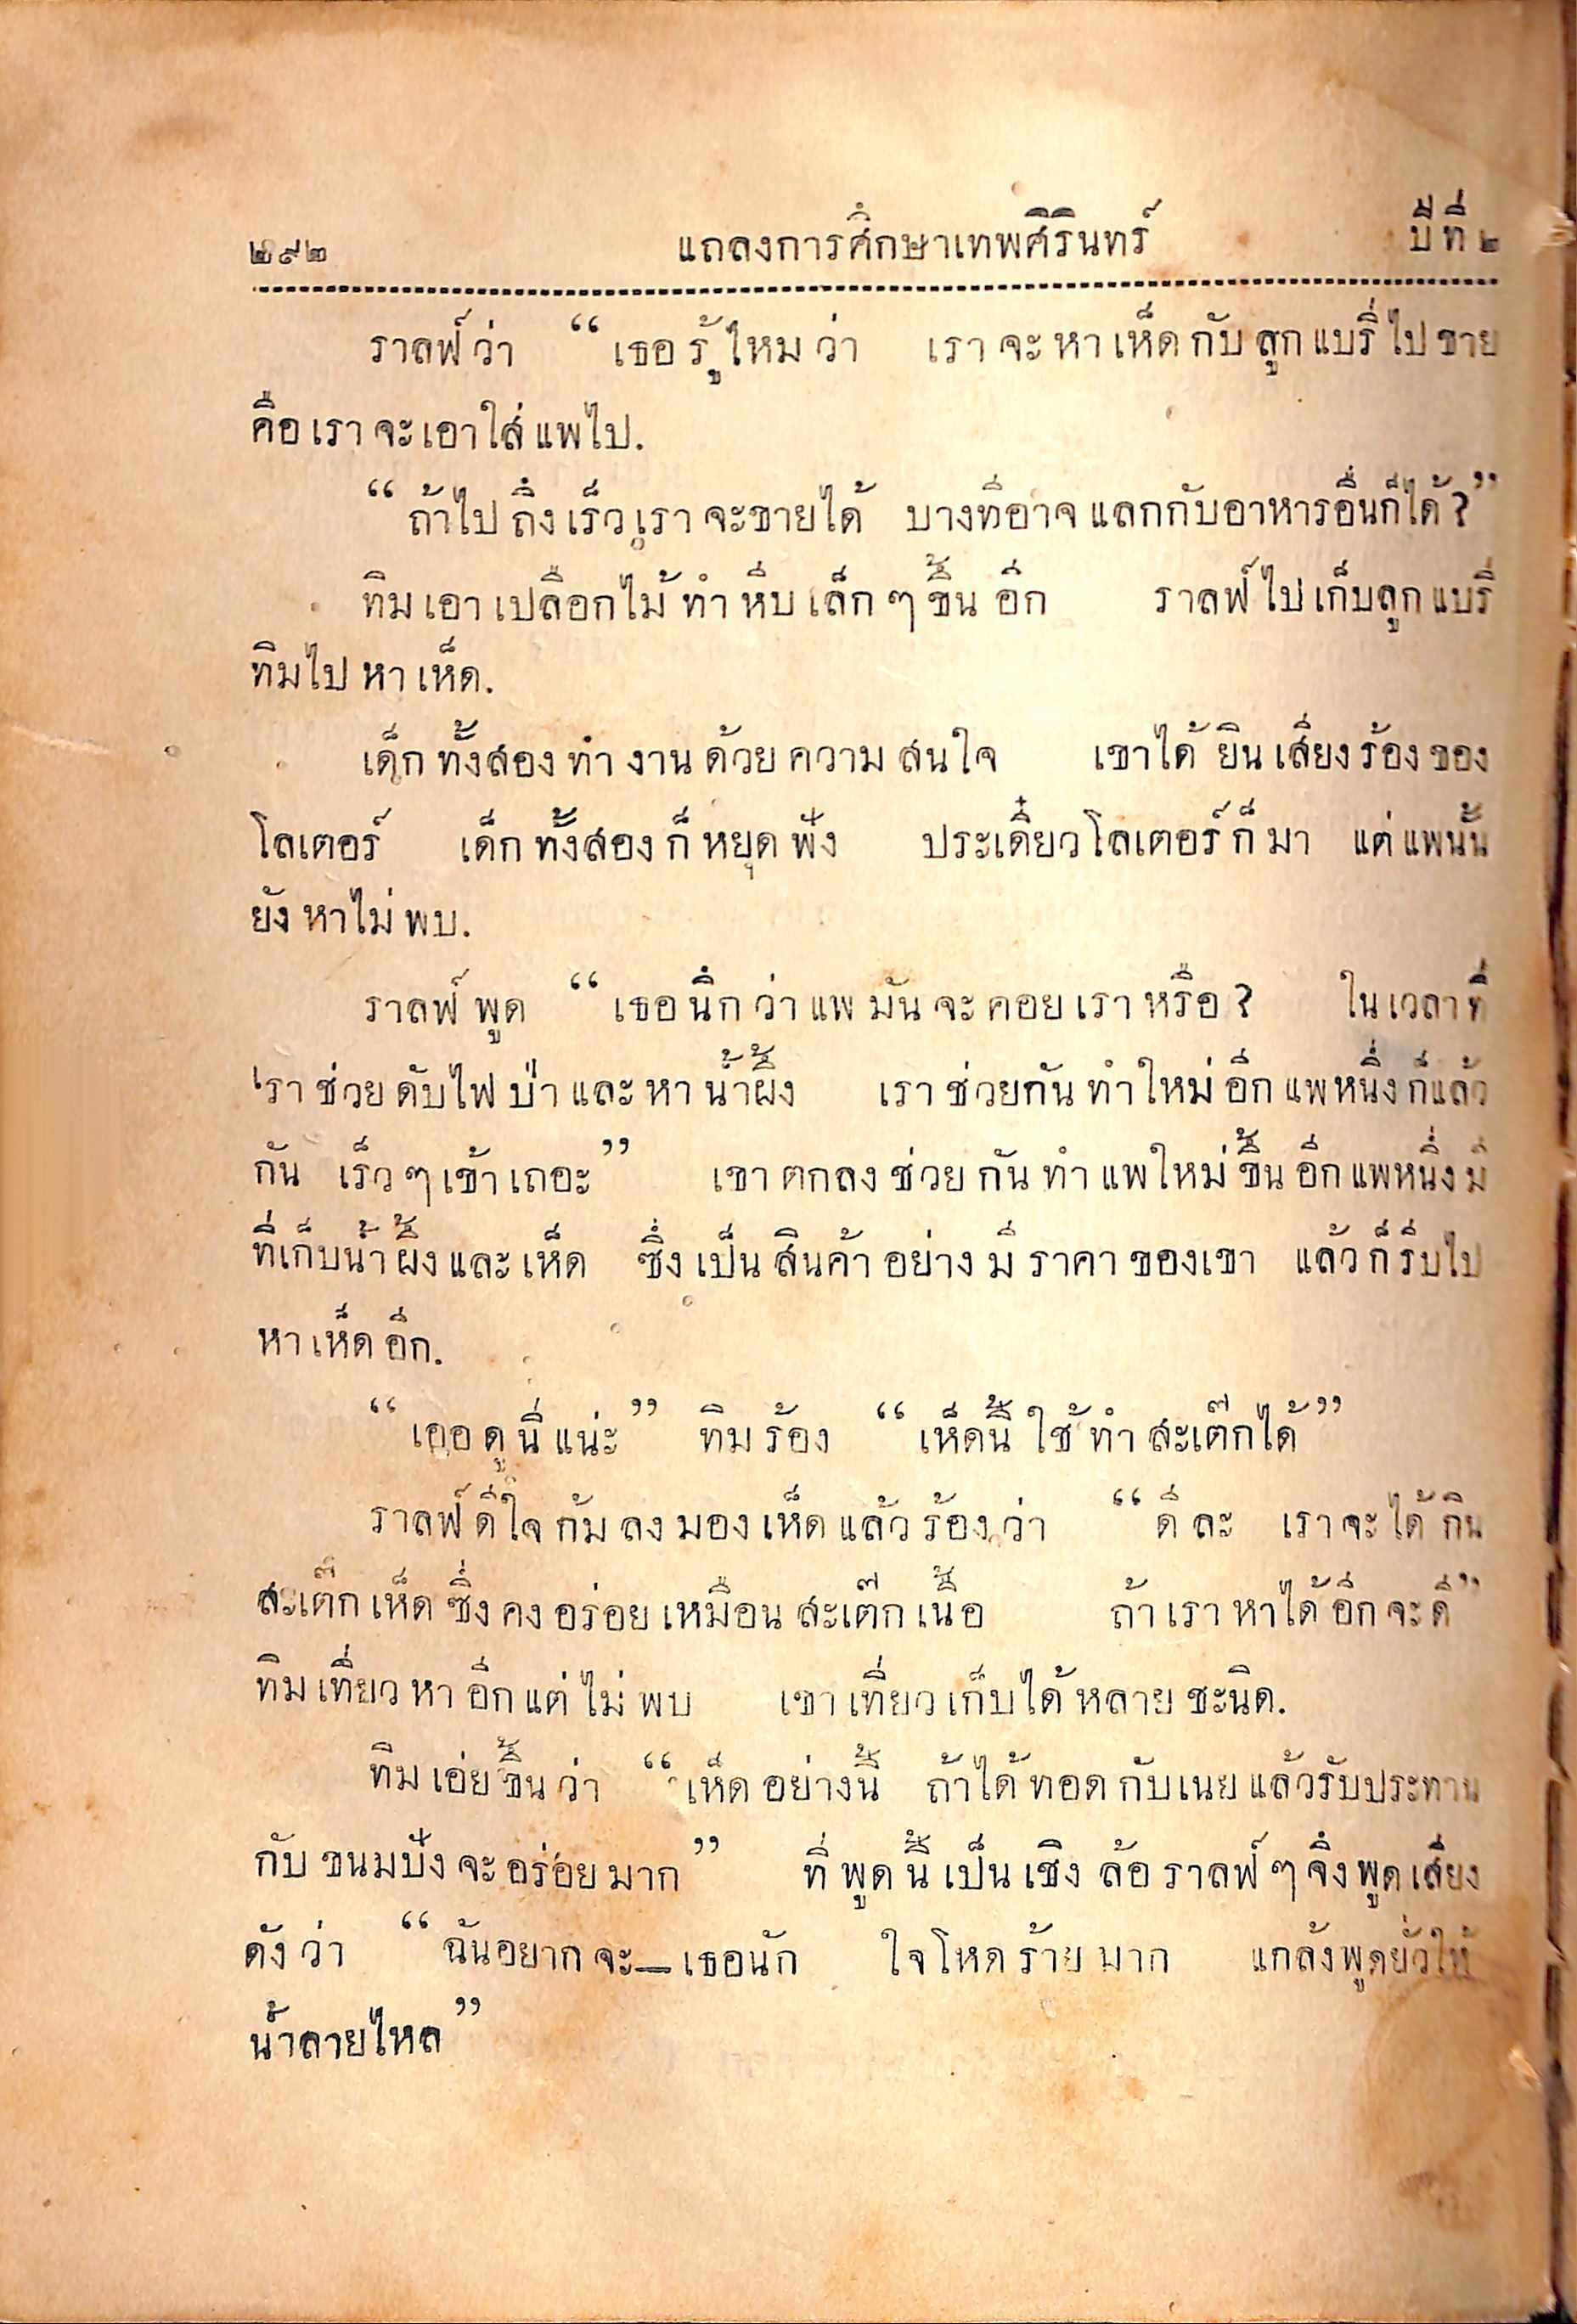 ๒๙๒ แถลงการศึกษาเทพศิรินทร์ ปีที่ ๒
ราลฟ์ว่า “เธอรู้ไหมว่า เราจะหาเห็ดกับลูกแบรี่ไปขาย
คือเราจะเอาใส่แพไป.
“ถ้าไปถึงเร็วเราจะขายได้ บางทีอาจแลกกับอาหารอื่นก็ได้?”
ทิมเอาเปลือกไม้ทำหีบเล็กๆขึ้นอีก ราลฟ์ไปเก็บลูกแบรี่
ทิมไปหาเห็ด.
เด็กทั้งสองทำงานด้วยความสนใจ เขาได้ยินเสียงร้องของ
โลเตอร์ เด็กทั้งสองก็หยุดฟัง ประเดี๋ยวโลเตอร์ก็มา แต่แพนั้น
ยังหาไม่พบ.
ราลฟ์พูด “เธอนึกว่าแพมันจะคอยเราหรือ? ในเวลาที่
เราช่วยดับไฟป่าและหาน้ำผึ้ง เราช่วยกันทำใหม่อีกแพหนึ่งก็แล้ว
กัน เร็วๆเข้าเถอะ” เขาตกลงช่วยกันทำแพใหม่ขึ้นอีกแพหนึ่งมี
ที่เก็บน้ำผึ้งและเห็ด ซึ่งเป็นสินค้าอย่างมีราคาของเขา แล้วก็รีบไป
หาเห็ดอีก.
“เออดูนี่แน่ะ” ทิมร้อง “เห็ดนี้ใช้ทำสะเต๊กได้”
ราลฟ์ดีใจก้มลงมองเห็ดแล้วร้องว่า “ดีละ เราจะได้กิน
สะเต๊กเห็ดซึ่งคงอร่อยเหมือนสะเต๊กเนื้อ ถ้าเราหาได้อีกจะดี”
ทิมเที่ยวหาอีกแต่ไม่พบ เขาเที่ยวเก็บได้หลายชะนิด.
ทิมเอ่ยขึ้นว่า “เห็ดอย่างนี้ ถ้าได้ทอดกับเนยแล้วรับประทาน
กับขนมปังจะอร่อยมาก” ที่พูดนี้เป็นเชิงล้อราลฟ์ๆจึงพูดเสียง
ดังว่า “ฉันอยากจะ—เธอนัก ใจโหดร้ายมาก แกล้งพูดยั่วให้
น้ำลายไหล”